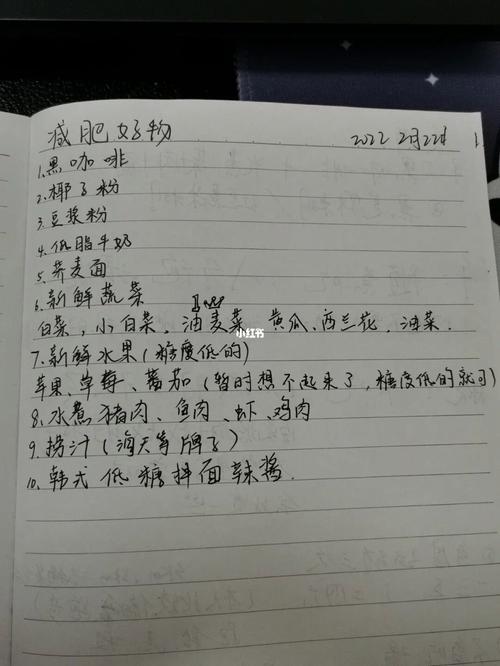 减肥好物
2022 2月22日
1.黑咖啡
2.椰子粉
3.豆浆粉
4.低脂牛奶
5.荞麦面
6.新鲜蔬菜
白菜，小白菜，油麦菜 黄瓜、西兰花，油菜.
小红书
7.新鲜水果(糖度低的)
苹果、草莓、蕃茄(暂时想不起来了，糖度低的就可)
8.水煮猪肉、鱼肉、虾、鸡肉
9.捞汁(海天等牌子)
10.韩式低糖拌面辣酱.